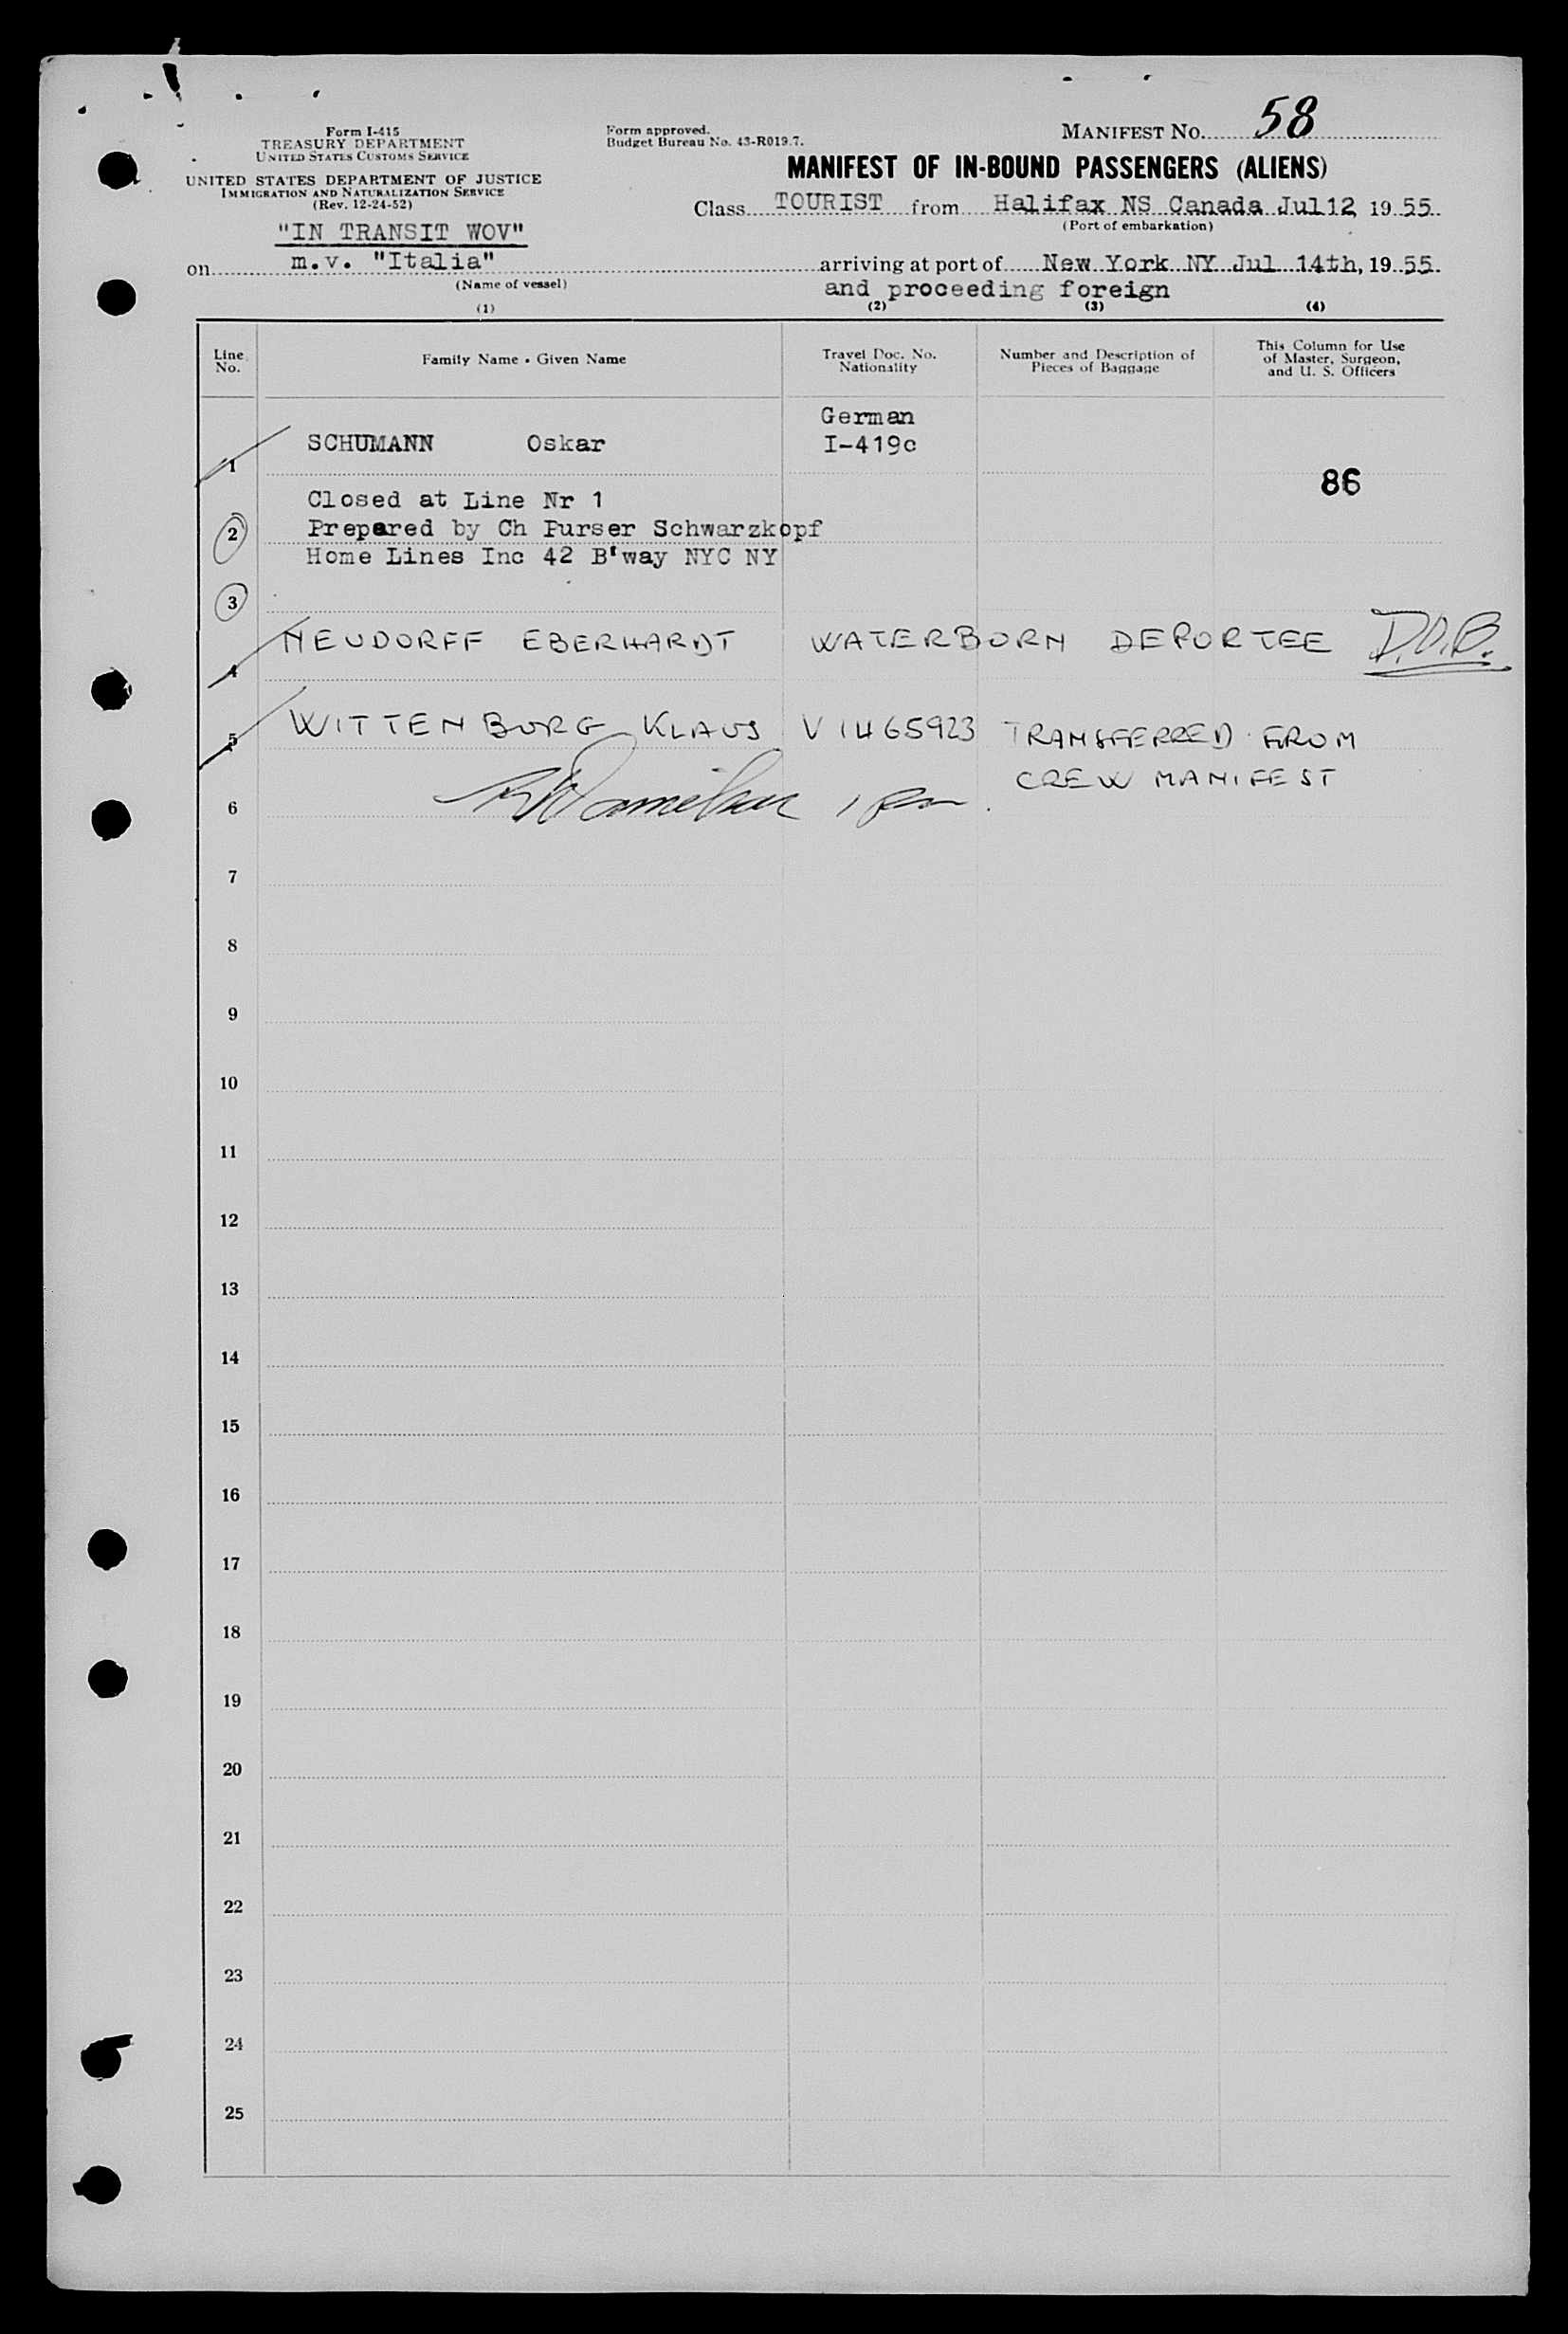 Form I-415
TREASURY DEPARTMENT
UNITED STATES CUSTOMS SERVICE
UNITED STATES DEPARTMENT OF JUSTICE
IMMIGRATION AND NATURALIZATION SERVICE
(Rev. 12-24-52)
Form approved.
Budget Bureau No. 43-R019.7.
MANIFEST NO. 58
MANIFEST OF IN-BOUND PASSENGERS (ALIENS)
Class TOURIST from Halifax NS Canada Jul 12, 19 55
(Port of embarkation)
"IN TRANSIT WOV"
on m.v. "Italia" arriving at port of New York NY Jul 14th, 19 55
(Name of vessel)
and proceeding foreign
(1) (2) (3) (4)
Line No.
Family Name - Given Name
Travel Doc. No.
Nationality
Number and Description of
Pieces of Baggage
This Column for Use
of Master, Surgeon,
and U. S. Officers
German
1 SCHUMANN Oskar I-419c
86
Closed at Line Nr 1
2 Prepared by Ch Purser Schwarzkopf
Home Lines Inc 42 B'way NYC NY
3
4 NEUDORFF EBERHARDT WATERBORN DEPORTEE D.O.B.
5 WITTENBURG KLAUS V1465923 TRANSFERRED FROM
CREW MANIFEST
6
7
8
9
10
11
12
13
14
15
16
17
18
19
20
21
22
23
24
25